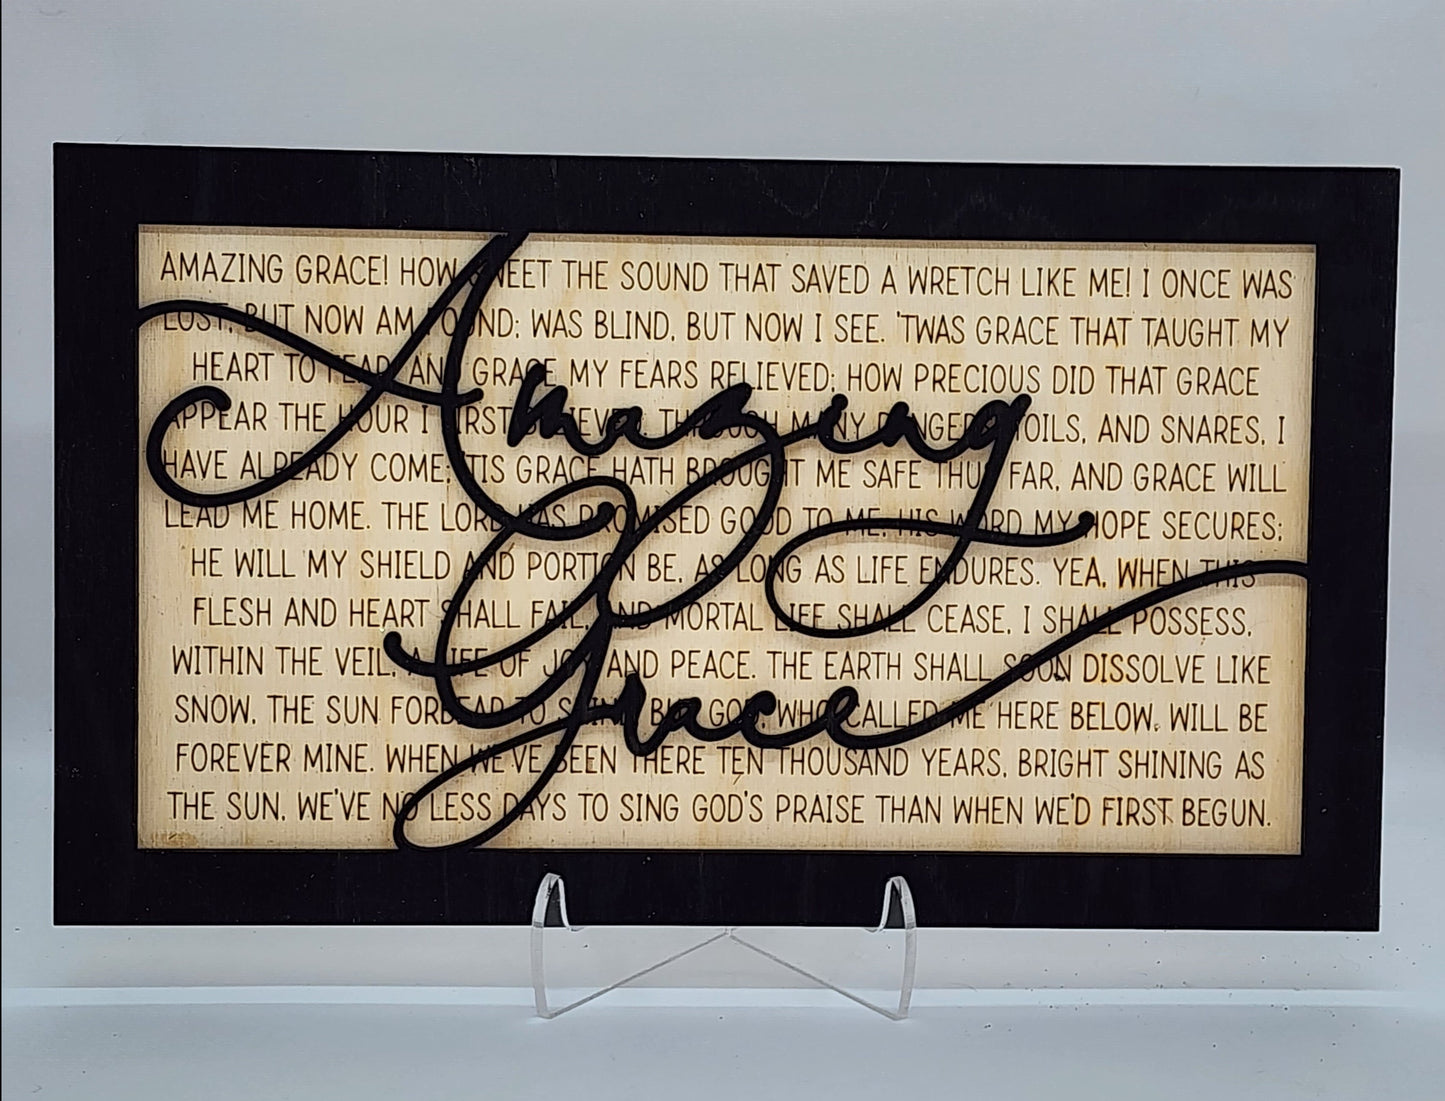 AMAZING GRACE! HOW SWEET THE SOUND THAT SAVED A WRETCH LIKE ME! I ONCE WAS
LOST, BUT NOW AM FOUND; WAS BLIND, BUT NOW I SEE. 'TWAS GRACE THAT TAUGHT MY
HEART TO FEAR, AND GRACE MY FEARS RELIEVED; HOW PRECIOUS DID THAT GRACE
APPEAR THE HOUR I FIRST BELIEVED. THROUGH MANY DANGERS, TOILS, AND SNARES, I
HAVE ALREADY COME; 'TIS GRACE HATH BROUGHT ME SAFE THUS FAR, AND GRACE WILL
LEAD ME HOME. THE LORD HAS PROMISED GOOD TO ME, HIS WORD MY HOPE SECURES;
HE WILL MY SHIELD AND PORTION BE, AS LONG AS LIFE ENDURES. YEA, WHEN THIS
FLESH AND HEART SHALL FAIL, AND MORTAL LIFE SHALL CEASE, I SHALL POSSESS,
WITHIN THE VEIL, A LIFE OF JOY AND PEACE. THE EARTH SHALL SOON DISSOLVE LIKE
SNOW, THE SUN FORBEAR TO SHINE; BUT GOD, WHO CALLED ME HERE BELOW, WILL BE
FOREVER MINE. WHEN WE'VE BEEN THERE TEN THOUSAND YEARS, BRIGHT SHINING AS
THE SUN, WE'VE NO LESS DAYS TO SING GOD'S PRAISE THAN WHEN WE'D FIRST BEGUN.
Amazing
Grace